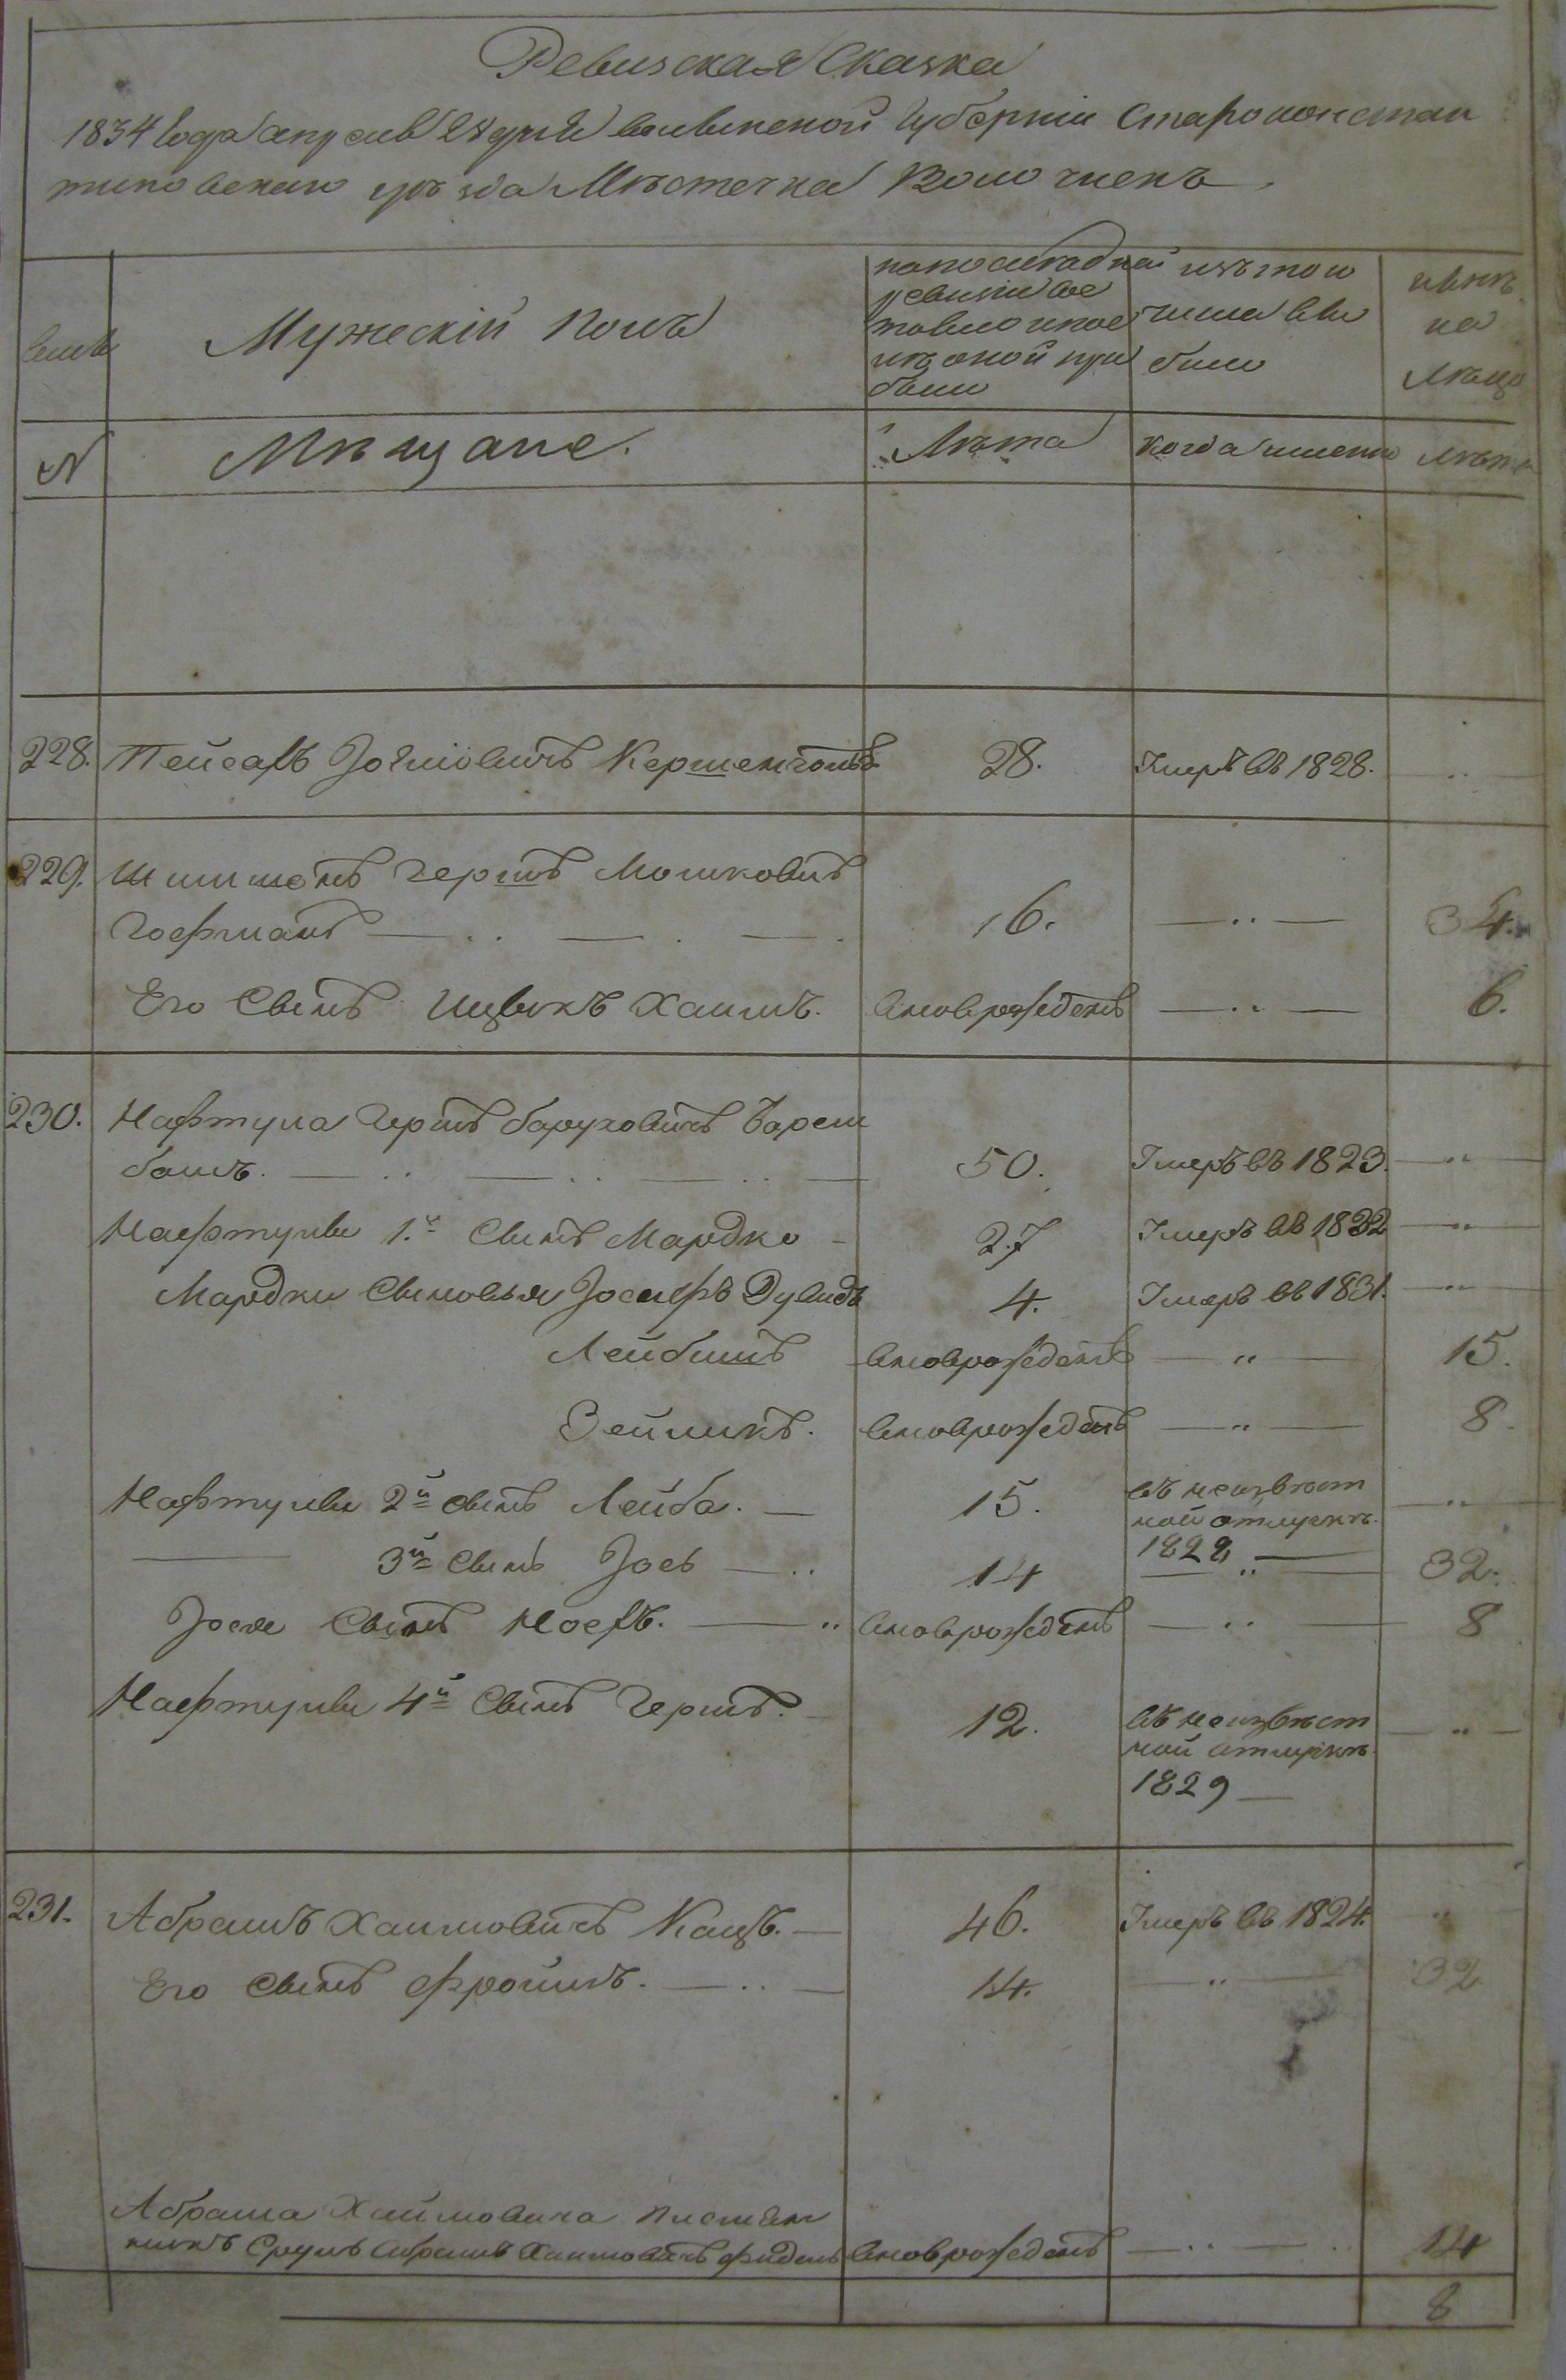 Ревизская Сказка
1834 года апреля 28 дня Волынской Губернии Староконстан
тиновскаго уѣзда Мѣстечка Волочискъ
Мужескій полъ
по последней ревизіи состояло и после оной прибыло
изъ того числа выбыло
нынѣ на лицо
№ Мѣщане. Лѣта когда именно лѣта
228. Пейсахъ Іосіовичъ 28. Умеръ въ 1828. ..
229. Шимшонъ Гершъ Мошковичъ
Гофманъ 16. — .. — 34.
Его Сынъ Ицыкъ Хаимъ. вновьрожденъ — .. — 6.
230. Нафтула Гершъ Баруховичъ Барен
баимъ. 50. Умеръ въ 1823. — .. —
Нафтулы 1.й Сынъ Мардко 27 Умеръ въ 1832 — .. —
Мардки Сыновья Іосифъ Дувидъ 4. Умеръ въ 1831. — .. —
Лейбишъ вновьрожденъ — " — 15.
Зейликъ. вновьрожденъ — .. — 8.
Нафтулы 2й сынъ Лейба. — 15. въ неизвѣст
ной отлучкѣ.
1828 — .. —
— 3й Сынъ Іось — .. 14 — " — 32.
Іося Сынъ Носъ. — .. вновьрожденъ — .. — 8
Нафтулы 4й Сынъ Гершъ. 12. въ неизвѣст
ной отлучкѣ.
1829 — " —
231. Абрамъ Хаимовичъ Кацъ. — 46. Умеръ въ 1824. "
Его Сынъ Фроимъ. — .. — 14. — " — 32
Абрама Хаимовича племян
никъ Сруль Абрамъ Хаимовичъ вновьрожденъ — .. — .. 14
8